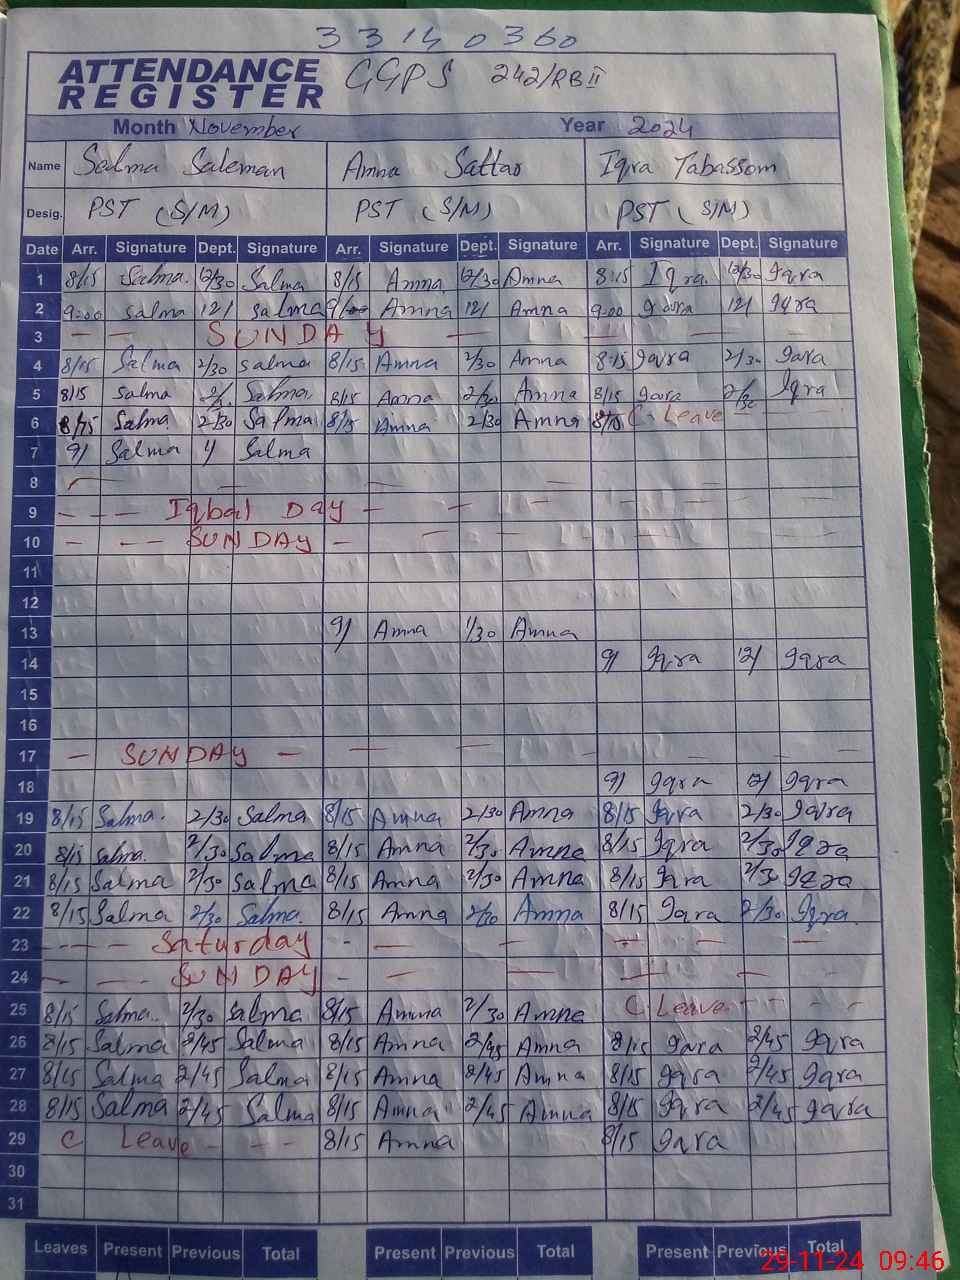 33140360
ATTENDANCE REGISTER GGPS 242/RB II
Month November Year 2024
Name Salma Saleman Amna Sattar Iqra Tabassom
Desig. PST (S/M) PST (S/M) PST (S/M)
Date Arr. Signature Dept. Signature Arr. Signature Dept. Signature Arr. Signature Dept. Signature
1 8/15 Salma. 12/30 Salma 8/15 Amna 12/30 Amna 8:15 Iqra. 12/30 Iqra
2 9:00 Salma 12/ Salma Amna 12/ Amna 9:00 Iqra 12/ Iqra
3 — — SUNDAY — — — — —
4 8/15 Salma 2/30 Salma 8/15 Amna 2/30 Amna 8:15 Iqra 2/30 Iqra
5 8/15 Salma 2/ Salma 8/15 Amna 2/30 Amna 8/15 Iqra 2/30 Iqra
6 8/15 Salma 2/30 Salma 8/15 Amna 2/30 Amna 8/15 C. Leave
7 9/ Salma 1/ Salma
8 — — — — — —
9 - - - Iqbal Day - - - - -
10 - - - SUNDAY - - - - -
11
12
13 9/ Amna 1/30 Amna
14 9/ Iqra 12/ Iqra
15
16
17 — SUNDAY — — — — — —
18 9/ Iqra Iqra
19 8/15 Salma. 2/30 Salma 8/15 Amna 2/30 Amna 8/15 Iqra 2/30 Iqra
20 8/15 Salma. 2/30 Salma 8/15 Amna 2/30 Amna 8/15 Iqra 2/30 Iqra
21 8/15 Salma 2/30 Salma 8/15 Amna 2/30 Amna 8/15 Iqra 2/30 Iqra
22 8/15 Salma 2/30 Salma. 8/15 Amna 2/30 Amna 8/15 Iqra 2/30 Iqra.
23 - - - - Saturday - — — — — —
24 - - - SUNDAY - — — — — —
25 8/15 Salma.. 2/30 Salma 8/15 Amna 2/30 Amna C Leave - - - -
26 8/15 Salma 2/45 Salma 8/15 Amna 2/45 Amna 8/15 Iqra 2/45 Iqra
27 8/15 Salma 2/45 Salma 8/15 Amna 2/45 Amna 8/15 Iqra 2/45 Iqra
28 8/15 Salma 2/45 Salma 8/15 Amna 2/45 Amna 8/15 Iqra 2/45 Iqra
29 C Leave - - - - 8/15 Amna 8/15 Iqra
30
31
Leaves Present Previous Total Present Previous Total Present Previous Total
29-11-24 09:46